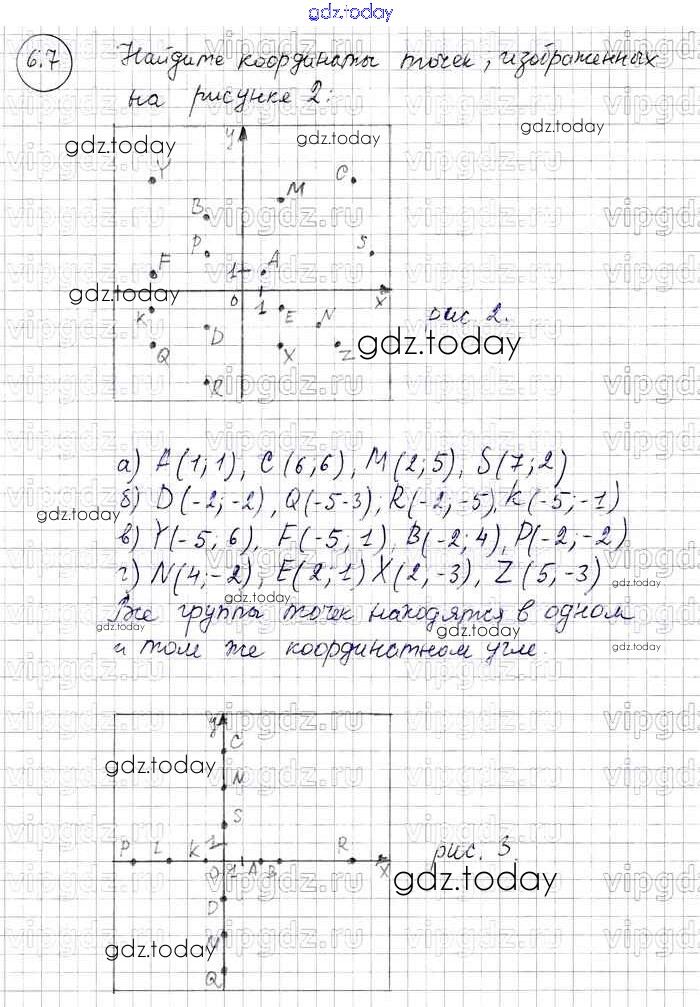 gdz.today
6.7 Найдите координаты точек, изображенных
на рисунке 2:
gdz.today gdz.today gdz.today
y
Y C
M
B
P S
F 1 A
gdz.today
0 1 x
K E N рис. 2.
D
Q X Z gdz.today
R
а) A(1; 1), C (6; 6), M(2; 5), S(7; 2)
б) D(-2; -2), Q(-5-3), R(-2; -5), K(-5; -1)
gdz.today
в) Y(-5; 6), F(-5; 1), B(-2; 4), P(-2; -2)
г) N(4; -2), E(2; 1) X(2, -3), Z (5, -3)
gdz.today
gdz.today
Все группы точек находятся в одном
gdz.today gdz.today
и том же координатном угле.
gdz.today
y
C
gdz.today
N
S
1
P L K 0 1 A B R x рис. 3.
gdz.today
D
gdz.today
Q
vipgdz.ru